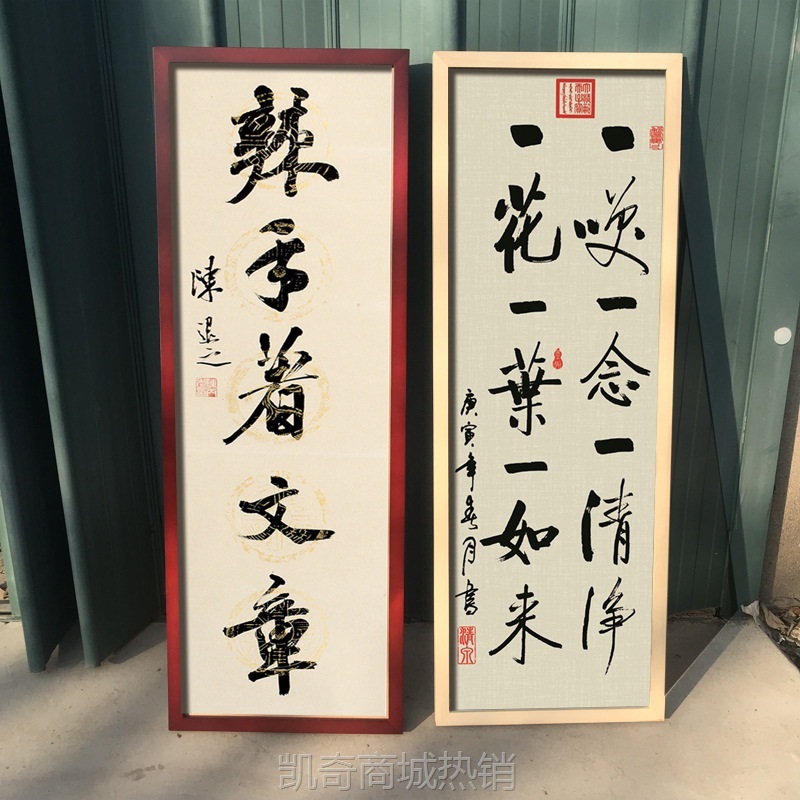 辣手著文章
陳退之
一咲一念一清淨
一花一葉一如来
庚寅年春月書
凯奇商城热销